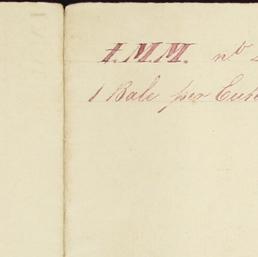 I.M.M. no
1 Bale per